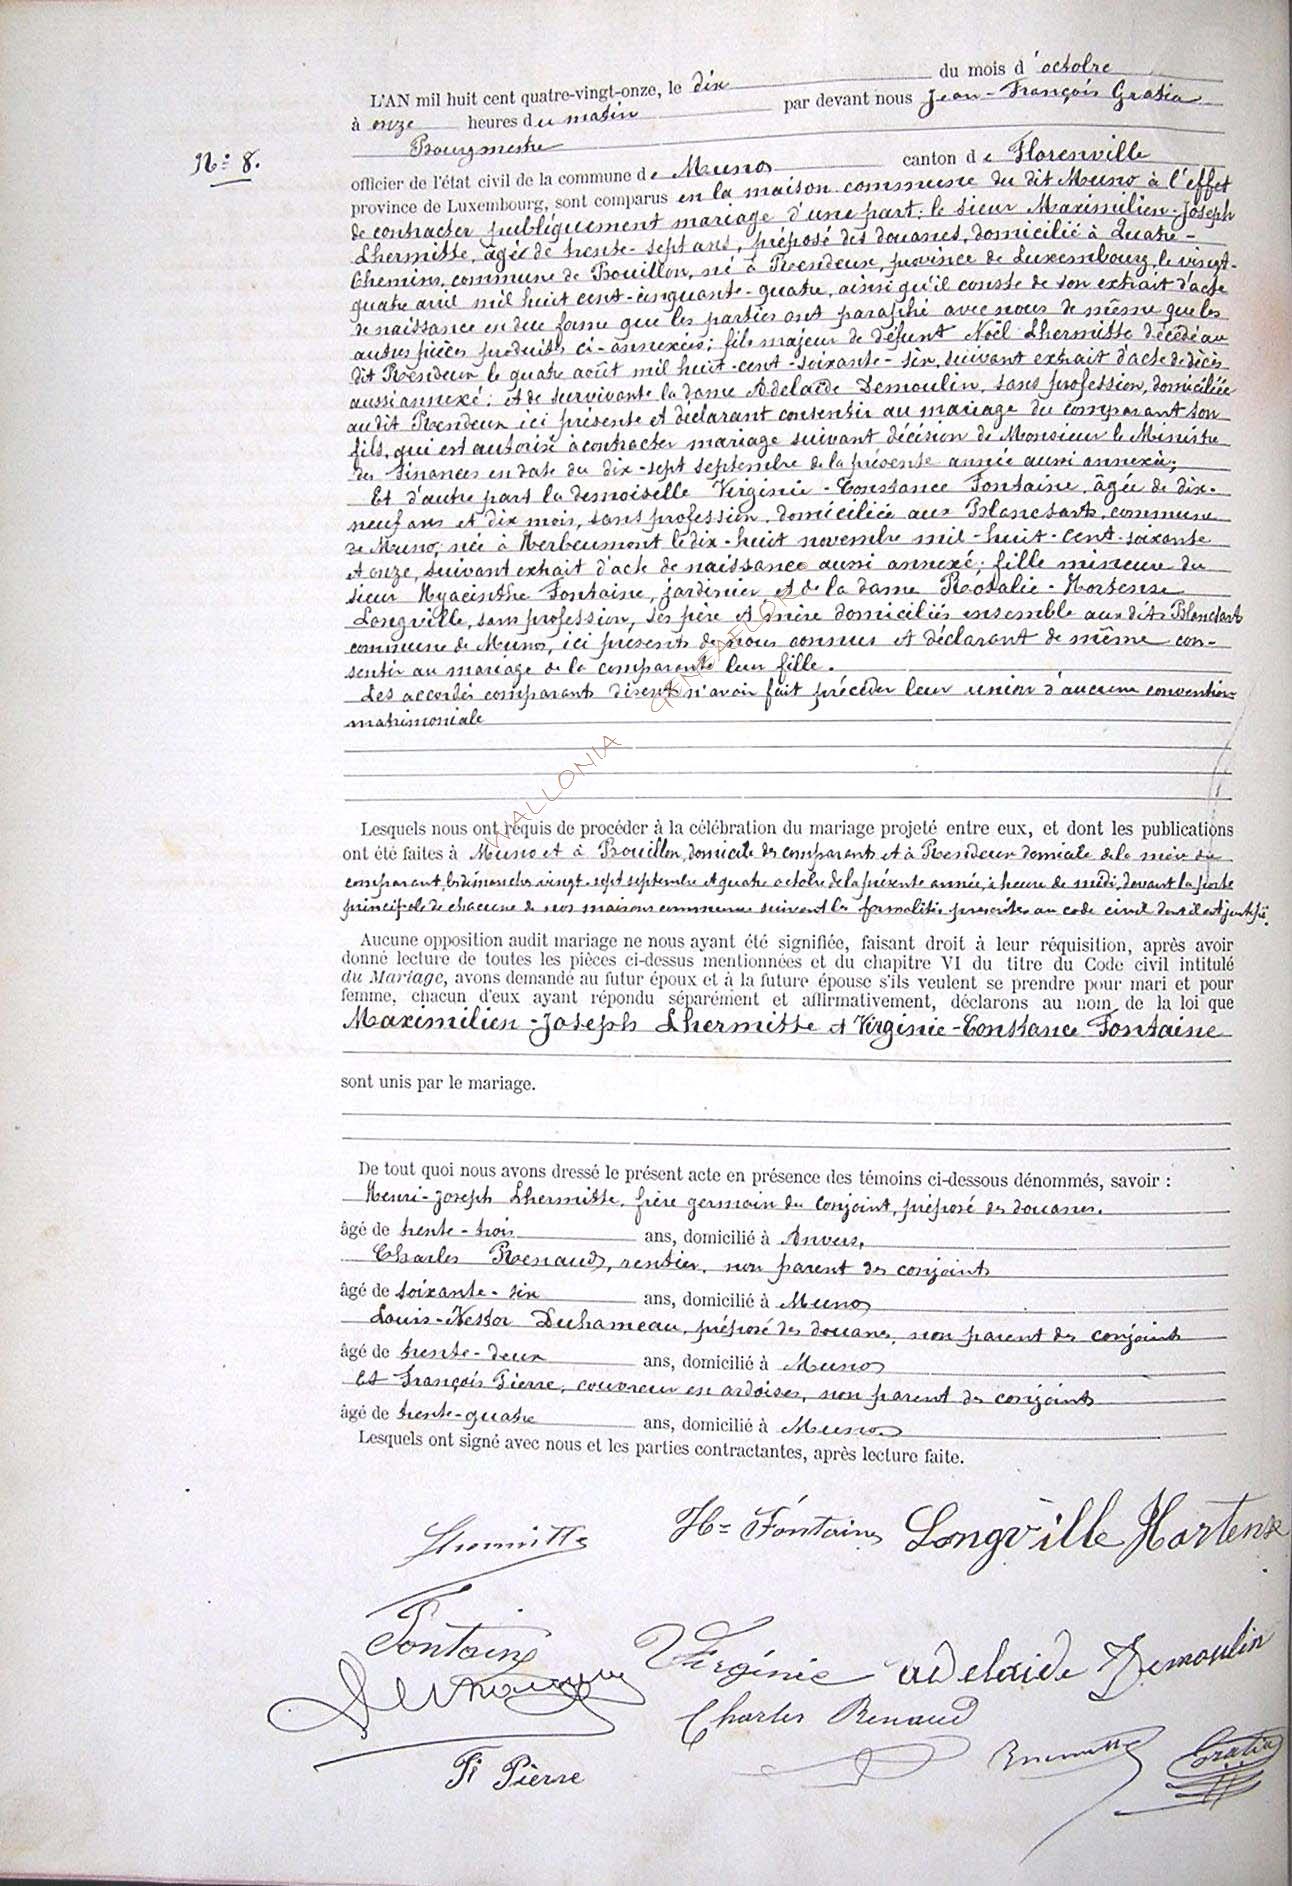 L'AN mil huit cent quatre-vingt-onze, le dix du mois d'octobre
à onze heures du matin par devant nous Jean-François Gratia
Bourgmestre
N.° 8.
officier de l'état civil de la commune de Muno canton de Florenville
province de Luxembourg, sont comparus en la maison commune du dit Muno à l'effet
de contracter publiquement mariage d'une part: le sieur Maximilien-Joseph
Lhermitte, âgée de trente-sept ans, préposé des douanes, domicilié à Quatre-
Chemins, commune de Bouillon, né à Rendeux, province de Luxembourg, le vingt-
quatre avril mil huit cent-cinquante-quatre, ainsi qu'il conste de son extrait d'acte
de naissance en due forme que les parties ont paraphé avec nous de même que les
autres pièces produites ci-annexées; fils majeur de défunt Noël Lhermitte décédé au
dit Rendeux le quatre août mil huit-cent-soixante-six, suivant extrait d'acte de décès
aussi annexé; et de survivante la dame Adelaïde Demoulin, sans profession, domiciliée
au dit Rendeux ici présente et déclarant consentir au mariage du comparant son
fils, qui est autorisé à contracter mariage suivant décision de Monsieur le Ministre
des Finances en date du dix-sept septembre de la présente année aussi annexée;
Et d'autre part la demoiselle Virginie-Constance Fontaine, âgée de dix-
neuf ans et dix mois, sans profession, domiciliée aux Blancsarts, commune
de Muno, née à Herbeumont le dix-huit novembre mil-huit-cent-soixante
et onze, suivant extrait d'acte de naissance aussi annexé; fille mineure du
sieur Hyacinthe Fontaine, jardinier et de la dame Rosalie-Hortense
Longville, sans profession, ses père et mère domiciliés ensemble aux dits Blancsart
commune de Muno, ici présents de nous connus et déclarant de même con-
sentir au mariage de la comparante leur fille.
Les accordés comparants disent n'avoir fait précéder leur union d'aucune convention
matrimoniale
WALLONIA GENEAFLOR
Lesquels nous ont requis de procéder à la célébration du mariage projeté entre eux, et dont les publications
ont été faites à Muno et à Bouillon, domicile des comparants et à Rendeux domicile de la mère du
comparant, les dimanches vingt-sept septembre et quatre octobre de la présente année, à heure de midi, devant la porte
principale de chacune de nos maisons commune suivant les formalités prescrites au code civil dont il est justifié.
Aucune opposition audit mariage ne nous ayant été signifiée, faisant droit à leur réquisition, après avoir
donné lecture de toutes les pièces ci-dessus mentionnées et du chapitre VI du titre du Code civil intitulé
du Mariage, avons demandé au futur époux et à la future épouse s'ils veulent se prendre pour mari et pour
femme, chacun d'eux ayant répondu séparément et affirmativement, déclarons au nom de la loi que
Maximilien-Joseph Lhermitte et Virginie-Constance Fontaine
sont unis par le mariage.
De tout quoi nous avons dressé le présent acte en présence des témoins ci-dessous dénommés, savoir :
Henri-Joseph Lhermitte, frère germain du conjoint, préposé des douanes.
âgé de trente-trois ans, domicilié à Anvers,
Charles Renaud, rentier, non parent des conjoints
âgé de soixante-six ans, domicilié à Muno
Louis-Nestor Duhameau, préposé des douanes, non parent des conjoints
âgé de trente-deux ans, domicilié à Muno
Et François Pierre, couvreur en ardoises, non parent des conjoints
âgé de trente-quatre ans, domicilié à Muno
Lesquels ont signé avec nous et les parties contractantes, après lecture faite.
Lhermitte Hte Fontaine Longville Hortense
Fontaine Virginie adelaide Demoulin
Charles Renaud
Gratia
Fs Pierre